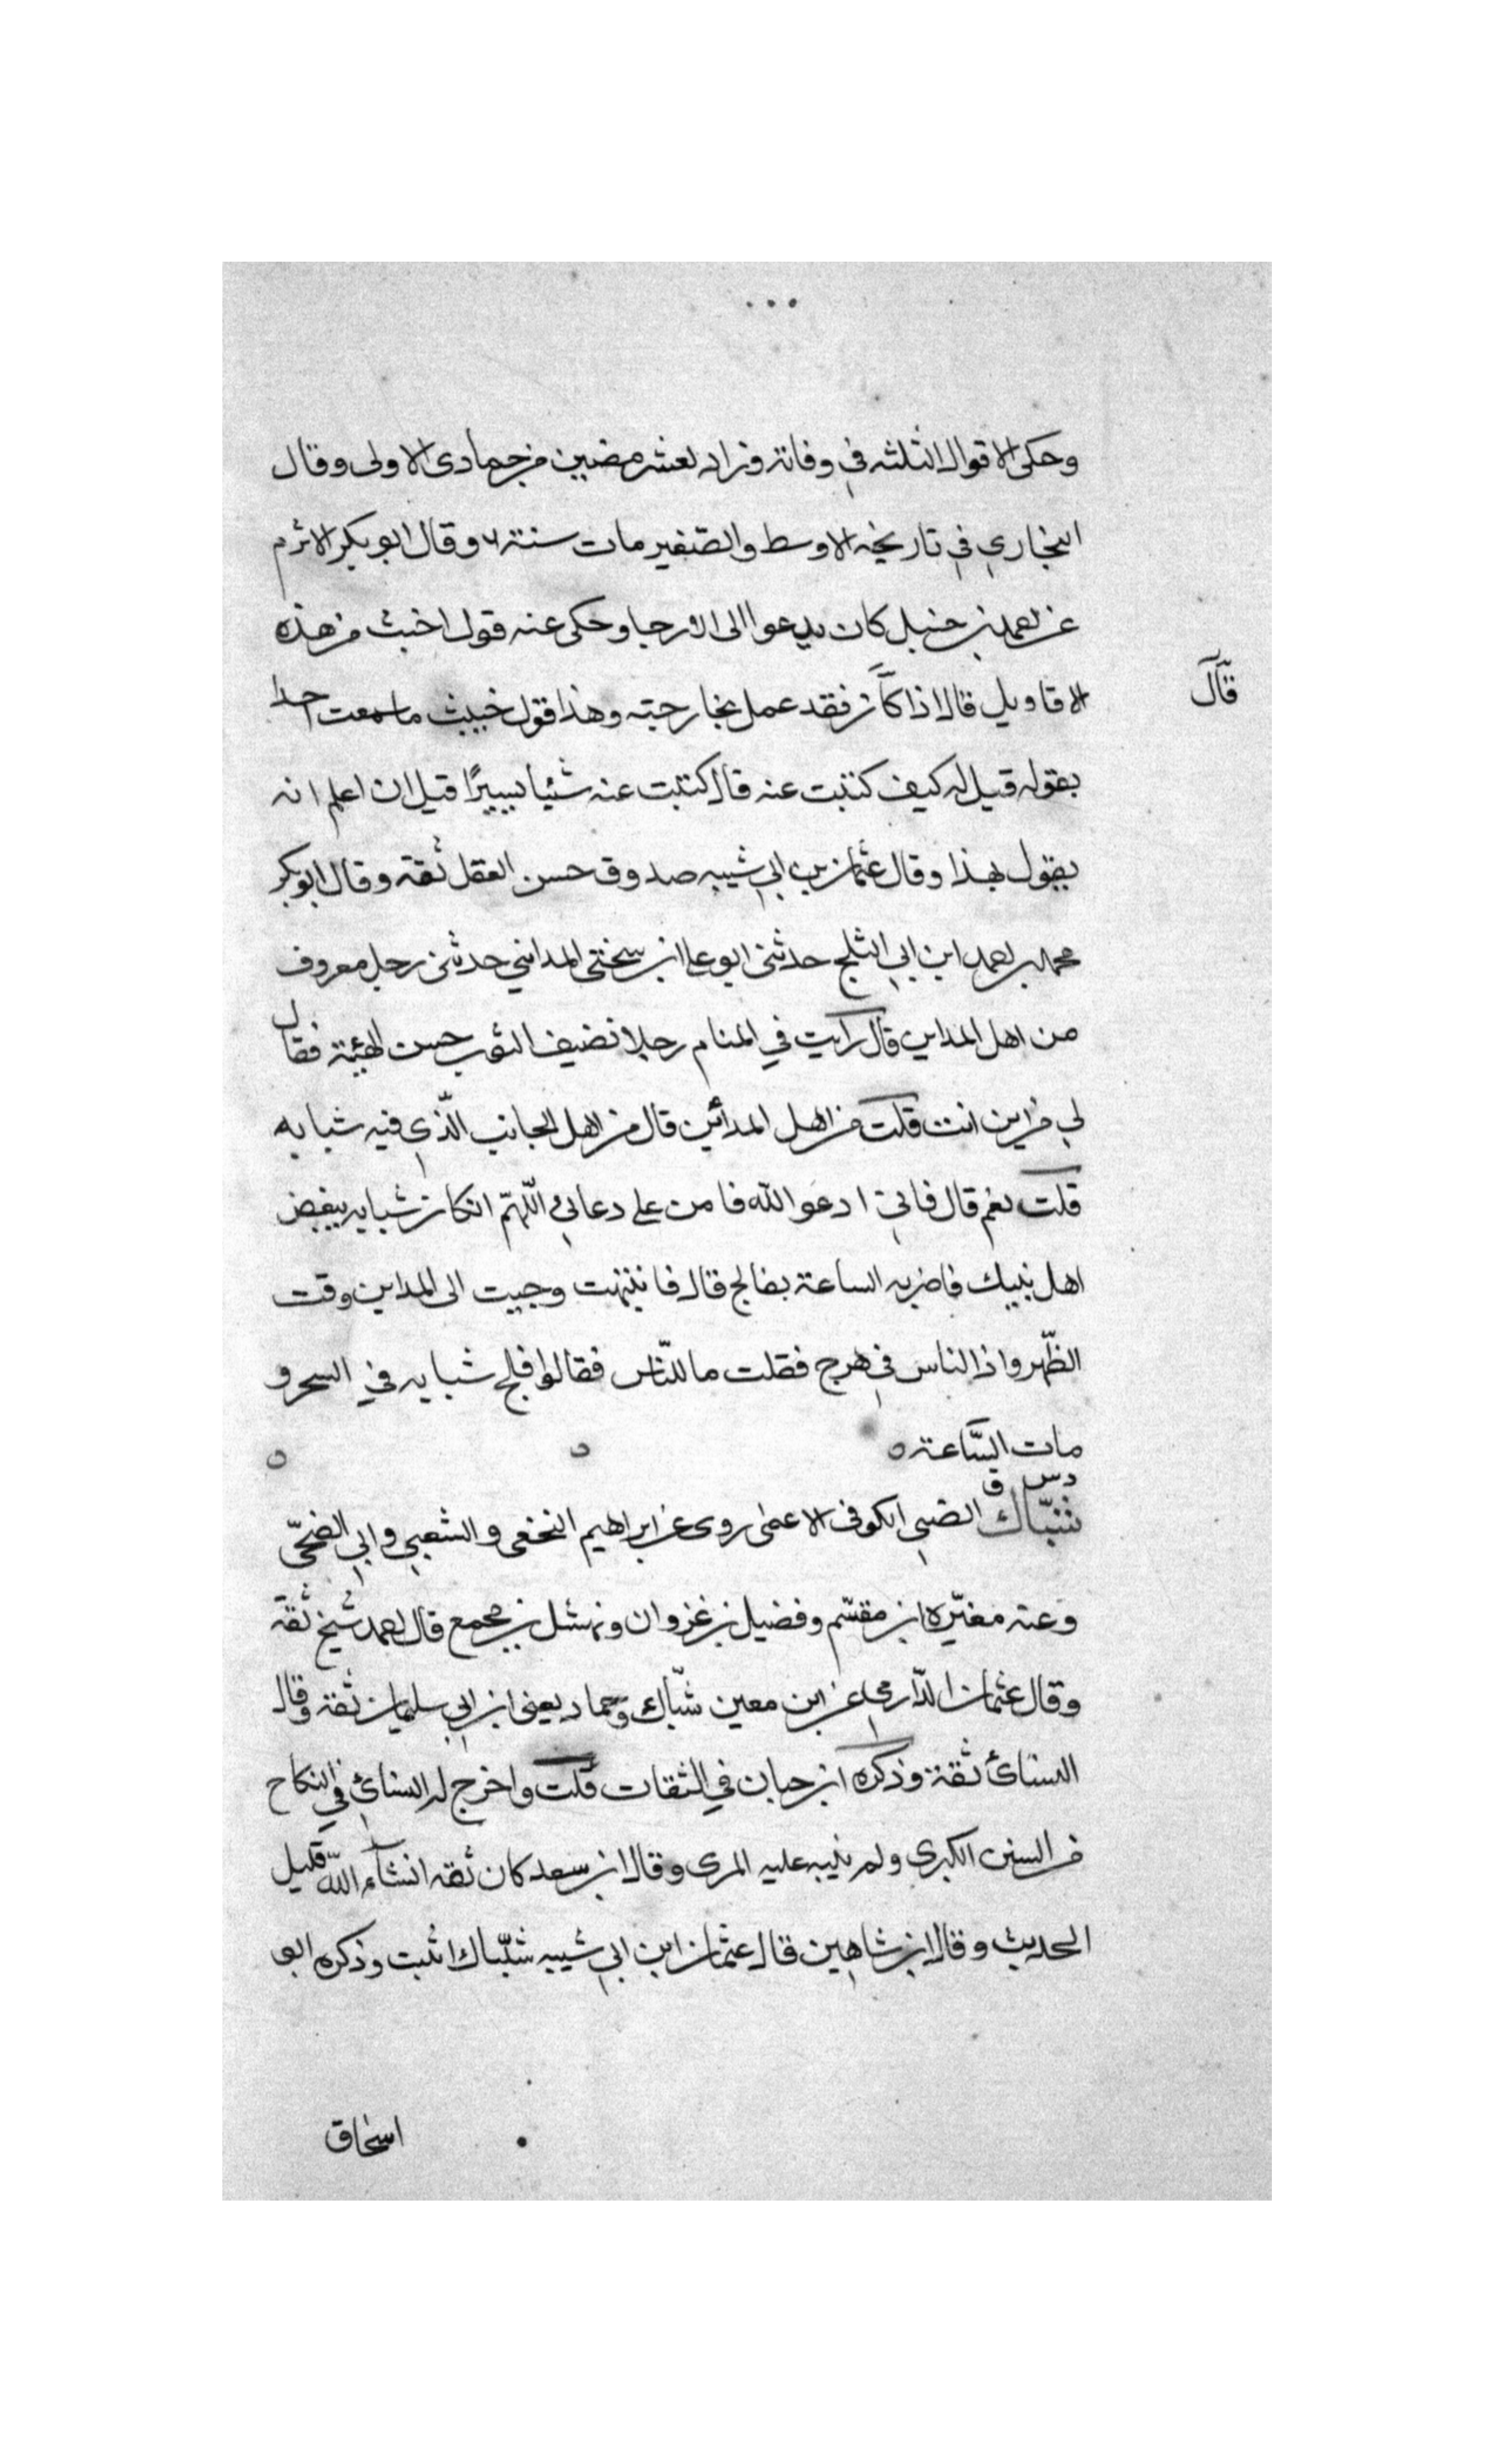 وحكى الاقوال الثلثه في وفاته وزاد لعشر مضين من جمادى الاولى وقال
البخاري في تاريخه الاوسط والصغير مات سنة ٦ وقال ابو بكر الاثرم
عن احمد بن حنبل كان يدعوا الى الارجا وحكى عنه قول اخبث من هذه
قال
الاقاويل قال اذا كان فقد عمل بجارحته وهذا قول خبيث ما سمعت احدا
يقوله قيل له كيف كتبت عنه قال كتبت عنه شيئا يسيرًا قبل ان اعلم انه
يقول بهذا وقال عثمان بن ابي شيبه صدوق حسن العقل ثقة وقال ابو بكر
محمد بن احمد ابن ابي الثلج حدثني ابو علي ابن سختي المدايني حدثني رجل معروف
من اهل المداين قال رايت في المنام رجلا نضيف الثوب حسن الهيئة فقال
لي من اين انت قلت من اهل المدأين قال من اهل الجانب الّذي فيه شبابه
قلت نعم قال فاني ادعو الله فامن على دعائي اللّهمّ ان كان شبابه يبغض
اهل نبيك فاضربه الساعة بفالج قال فانتبهت وجيت الى المداين وقت
الظّهر واذا الناس في هرج فقلت ما للنّاس فقالوا فلج شبابه في السحر و
مات السّاعة ه ه ه
د س ق
شبّاك الضبي الكوفى الاعمى روى عن ابراهيم النخعى والشعبي وابي الضحّى
وعنه مغيّره ابن مقسّم وفضيل بن غزوان ونهشل بن مجمع قال احمد شيخ ثقة
وقال عثمان الدّارمي عن ابن معين شبّاك وحماد يعنى ابن ابي سليمان ثقة وقال
النسائ ثقة وذكره ابن حبان في الثقات قلت واخرج له النسائ في النكاح
من السنن الكبرى ولم ينبه عليه المزى وقال ابن سعد كان ثقه انشآء اللّه قليل
الحديث وقال ابن شاهين قال عثمان ابن ابي شيبه شبّاك اثبت وذكره ابو
اسحاق